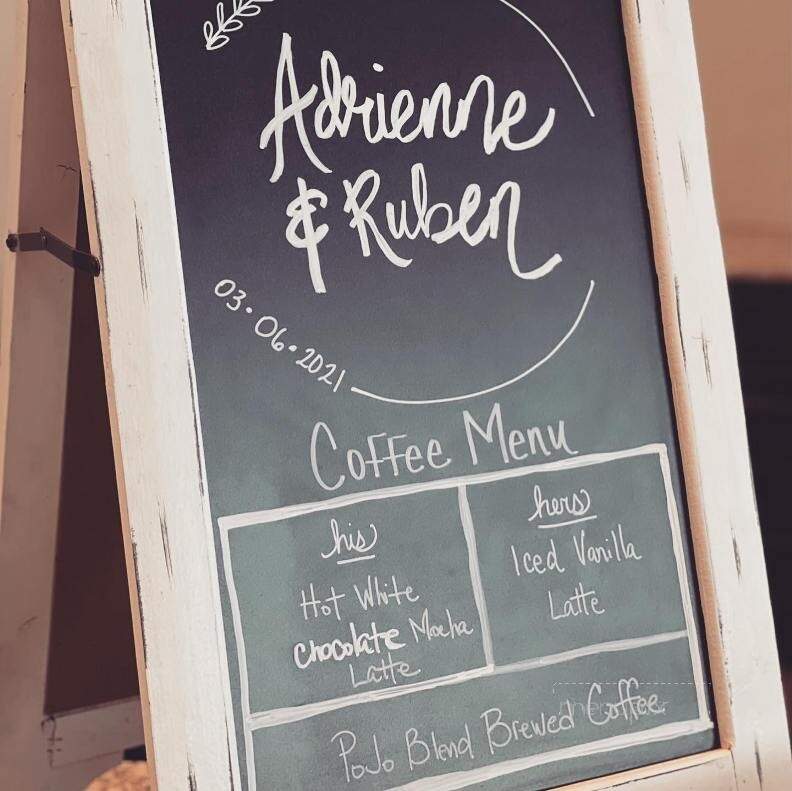 Adrienne
& Ruben
03.06.2021
Coffee Menu
his
Hot White
chocolate Mocha
Latte
hers
Iced Vanilla
Latte
PoJo Blend Brewed Coffee